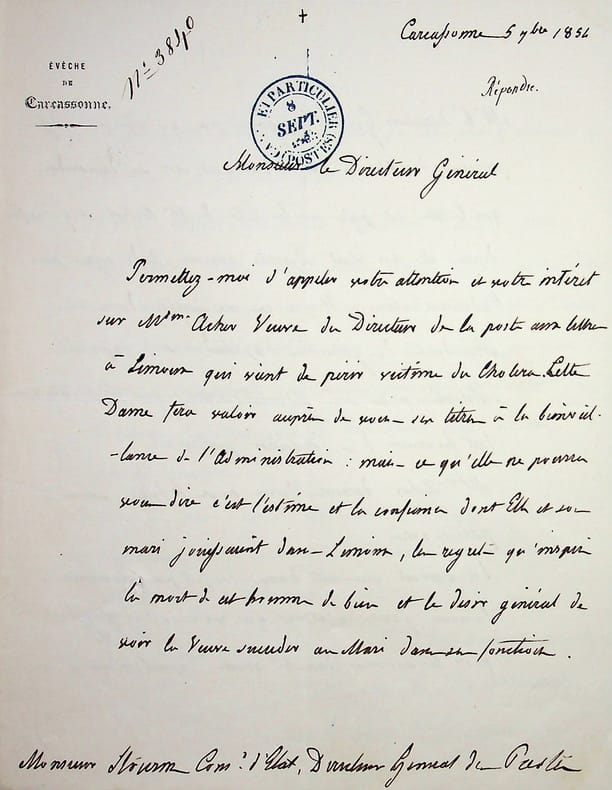 Carcassonne 5 7bre 1854
N° 3840
ÉVÊCHÉ
DE
Carcassonne.
Répondre.
ET PARTICULIER
8
SEPT.
(POSTES)
Monsieur le Directeur Général
Permettez-moi d'appeler votre attention et votre intérêt
sur Mdme Acher Veuve du Directeur de la poste aux lettres
à Limoux qui vient de périr victime du Choléra. Cette
Dame fera valoir auprès de vous ses titres à la bienveil-
-lance de l'Administration : mais ce qu'elle ne pourra
vous dire c'est l'estime et la confiance dont Elle et son
mari jouissaient dans Limoux, les regrets qu'inspire
la mort de cet homme de bien et le désir général de
voir la Veuve succéder au Mari dans ses fonctions.
Monsieur Stourm Cons.r d'Etat, Directeur Général des Postes